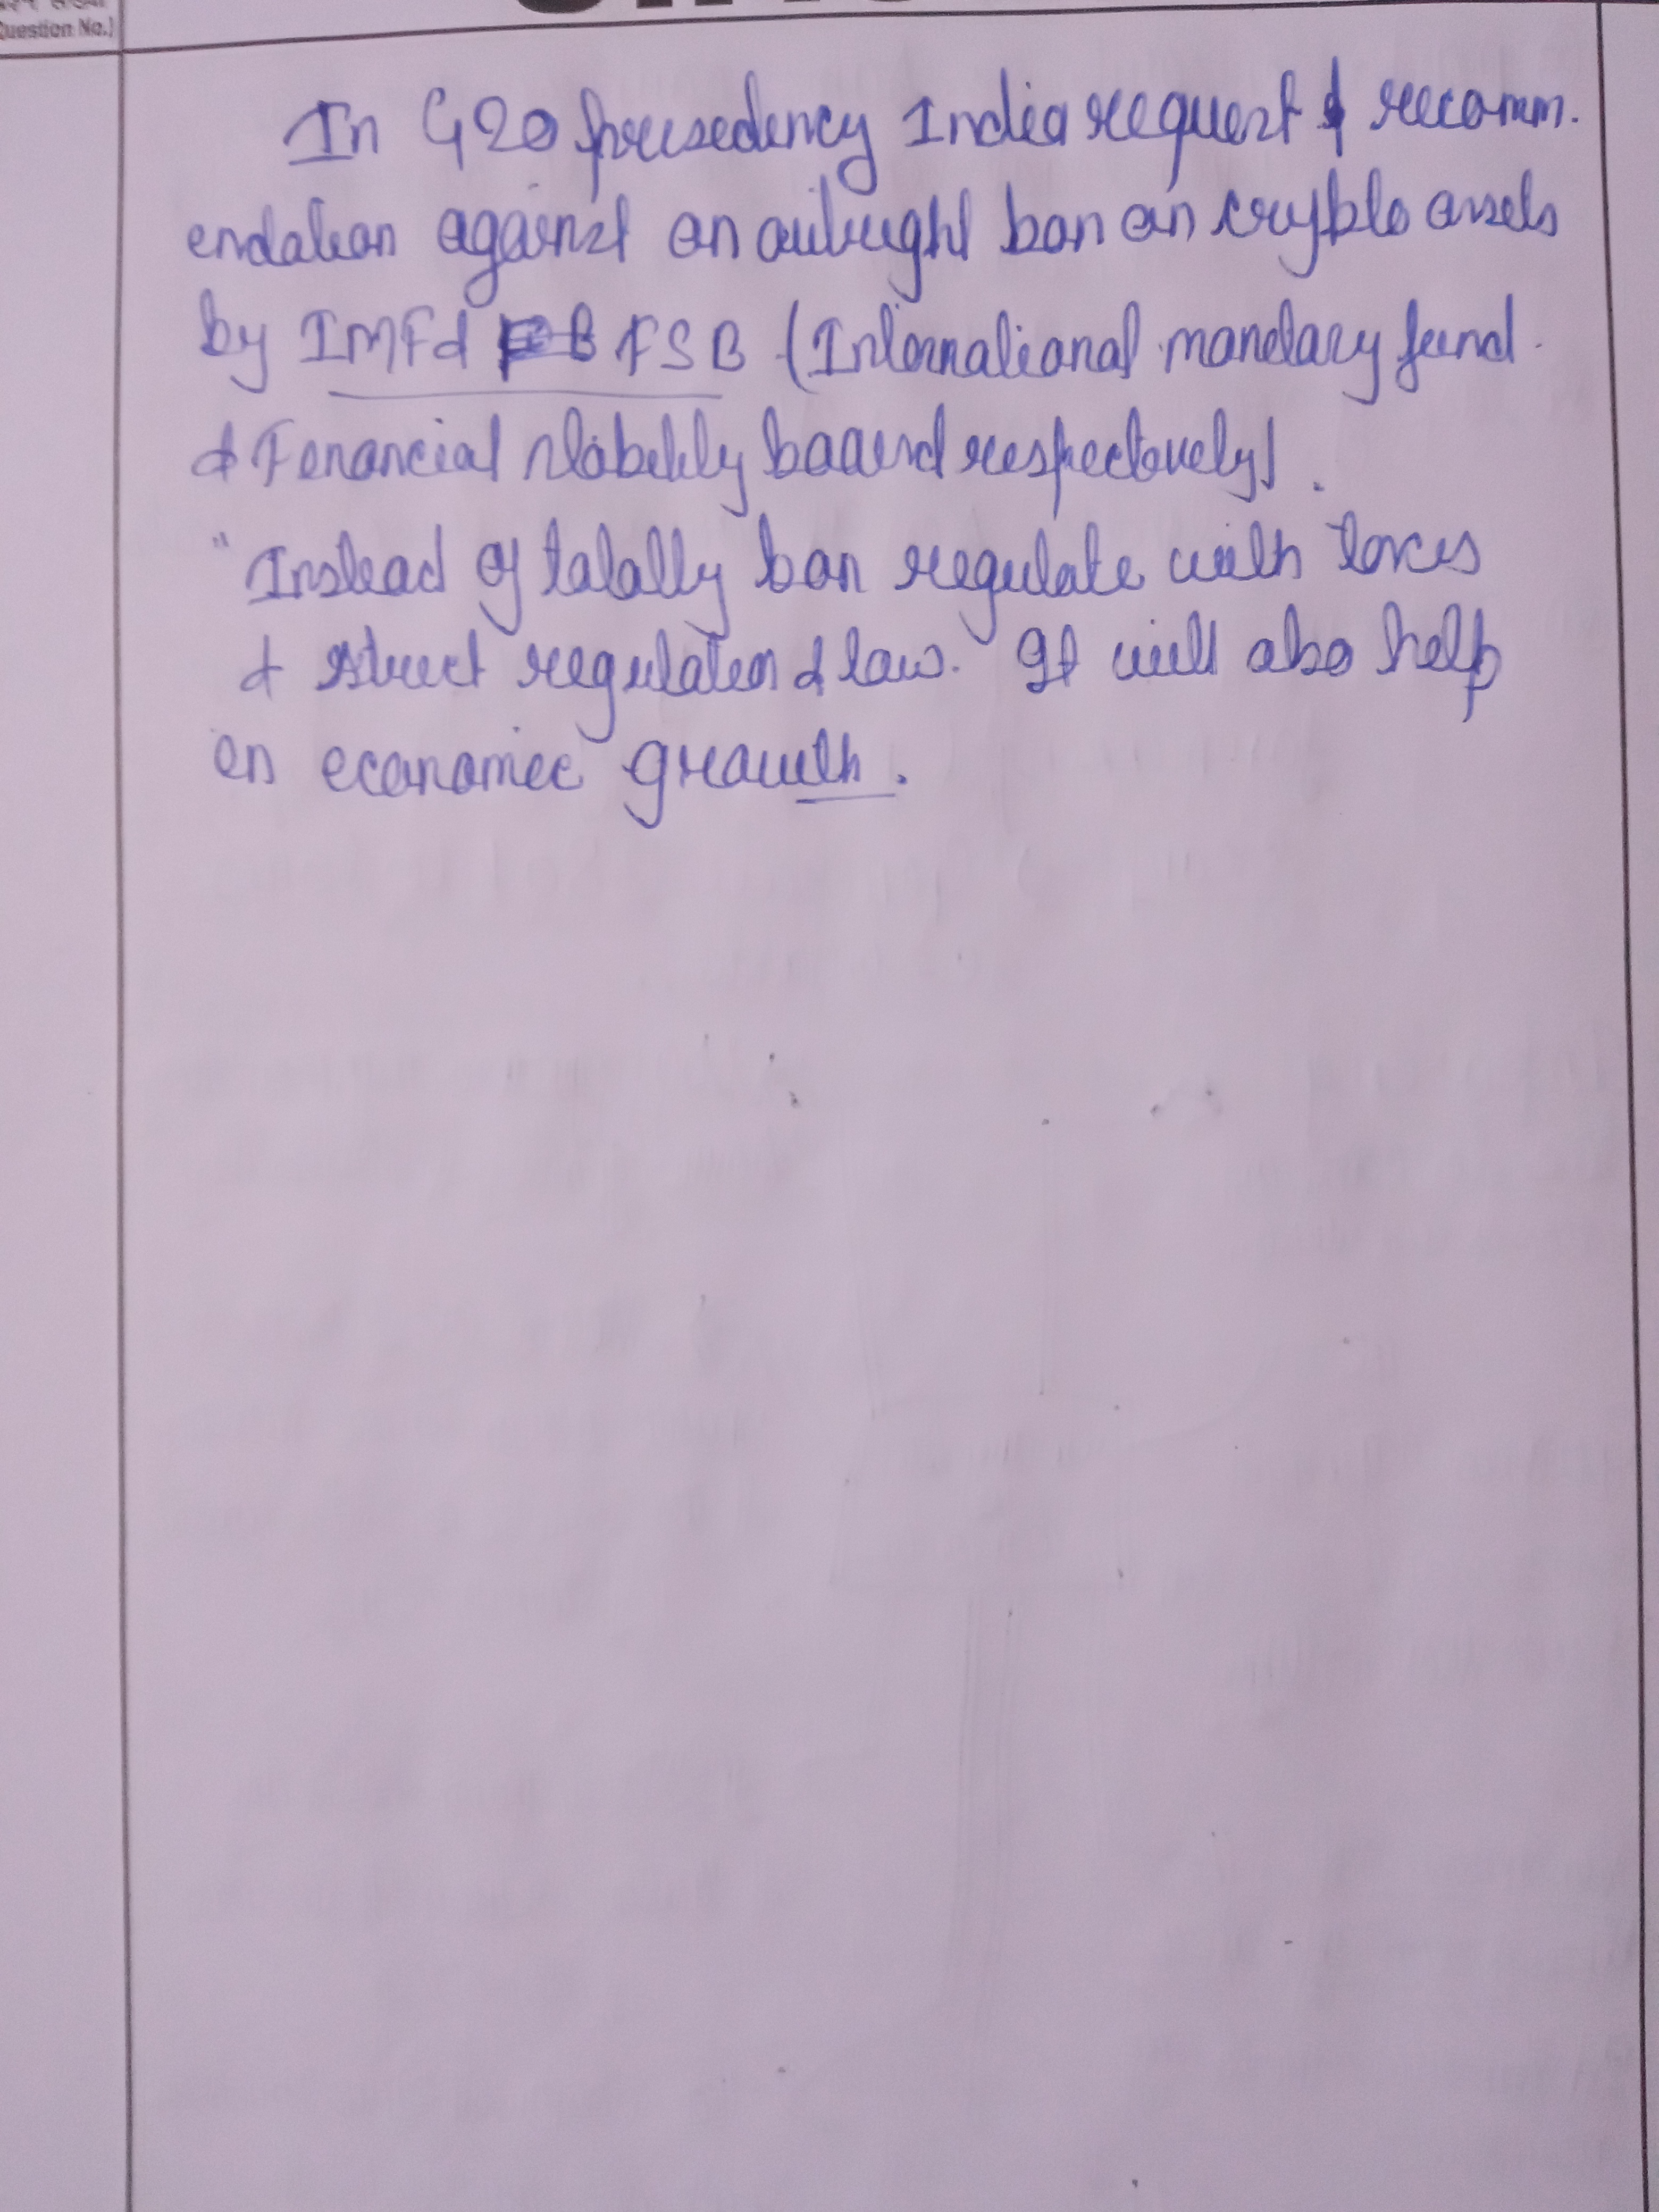 Question No.)
In G20 presedency India request & recomm.
endation against an outright ban on crypto assets
by IMF & FSB (International monetary fund
& Financial stability board respectively).
"Instead of totally ban regulate with taxes
& strict regulation & law." It will also help
in economic growth.